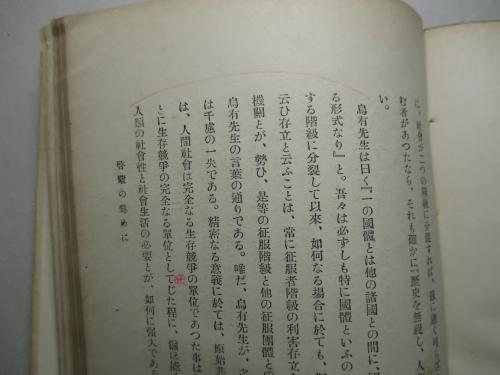 に、社會が二つの階級に分裂すれば、
む者があつたなら、それも確かに『歴史を無視し、人
い。
烏有先生は曰く『一の國體とは他の諸國との間に、
る形式なり』と。吾々は必ずしも特に國體といふの
する階級に分裂して以來、如何なる場合に於ても、
云ひ存立と云ふことは、常に征服者階級の利害存立
機關とが、勢ひ、是等の征服階級と他の征服團體との
烏有先生の言葉の通りである。唯だ、烏有先生が、
は千慮の一失である。精密なる意義に於ては、原始共
は、人間社會は完全なる生存競爭の單位であつた事は
とに生存競爭の完全なる單位としてじた程に、
人類の社會性と社會生活の必要とが、如何に強大であ
啓蒙の爲めに